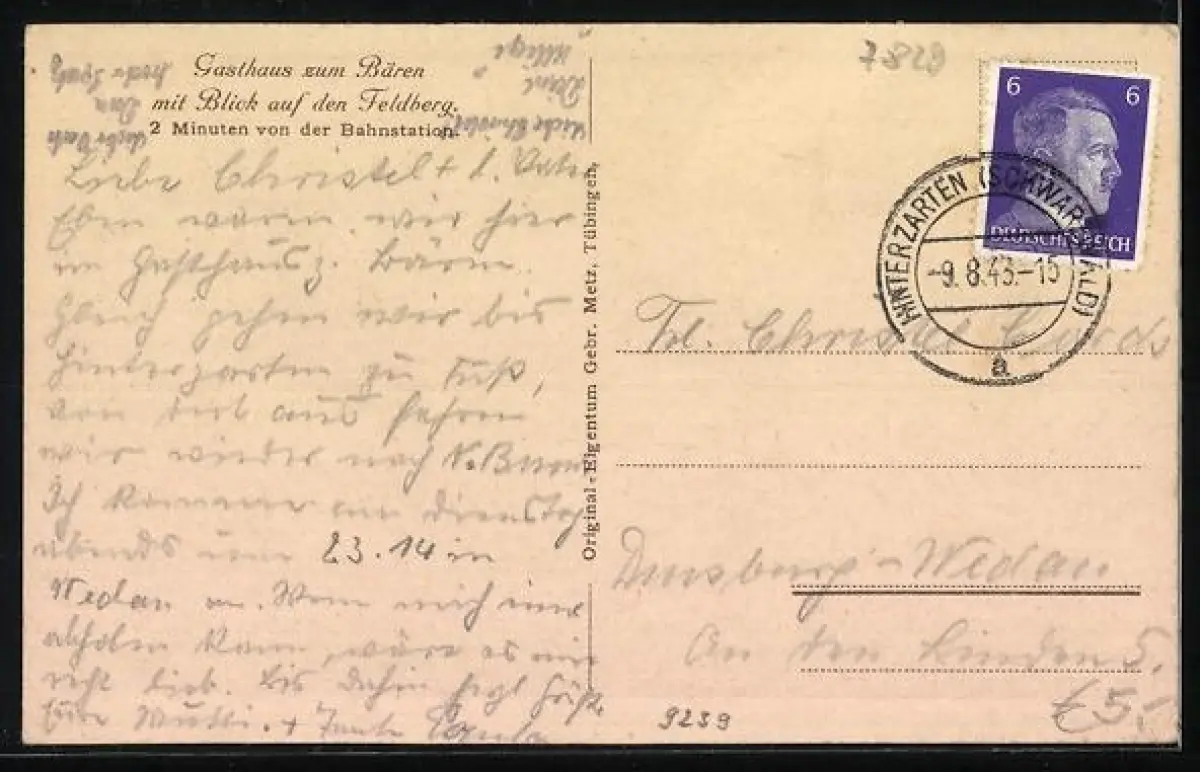 Gasthaus zum Bären
mit Blick auf den Feldberg.
2 Minuten von der Bahnstation.
Liebe Christel + l.
Eben waren wir hier
im Gasthaus z. Bären.
Gleich gehen wir bis
Hinterzarten zu Fuß,
von dort aus fahren
wir wieder nach
Ich komme am Dienstag
abends um 23.14 in
Wedau an. Wenn mich einer
abholen kann, wäre es mir
recht lieb. Bis dahin
Eure Mutti. + Tante
Original-Eigentum Gebr. Metz, Tübingen
7829
6 6
DEUTSCHES REICH
HINTERZARTEN (SCHWARZWALD)
-9.8.43.-15
a
Frl. Christel
Duisburg-Wedau
An den Linden 5.
9239
€5,-